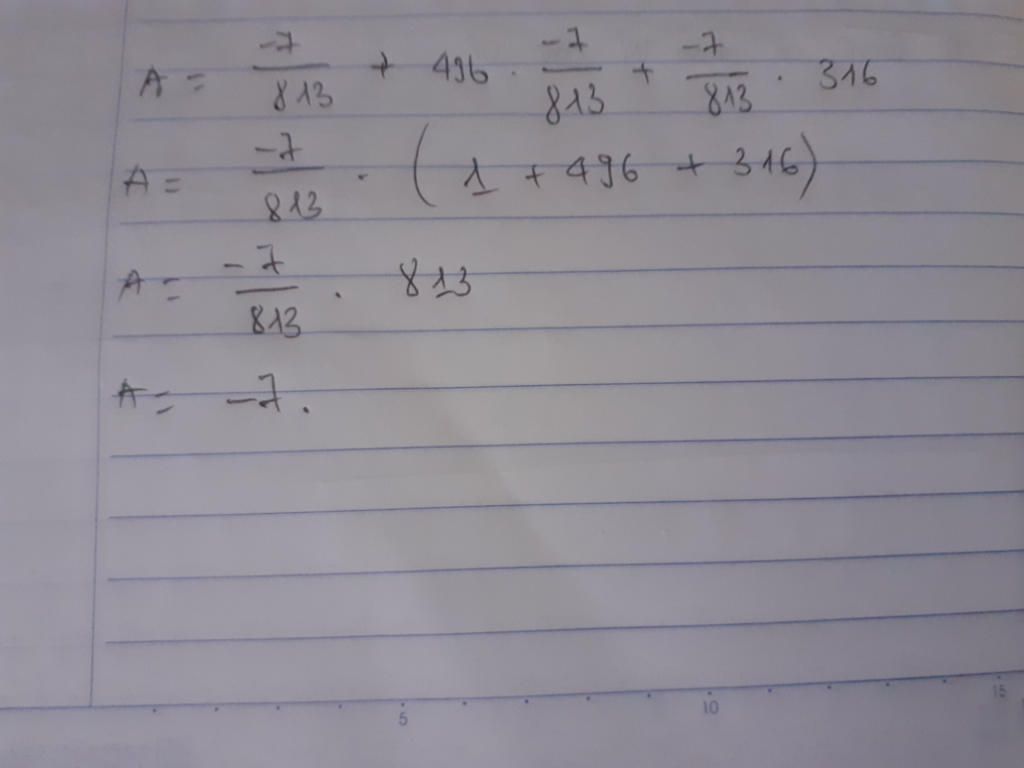 A = -7/813 + 496 · -7/813 + -7/813 · 316
A = -7/813 · (1 + 496 + 316)
A = -7/813 · 813
A = -7.
5 10 15